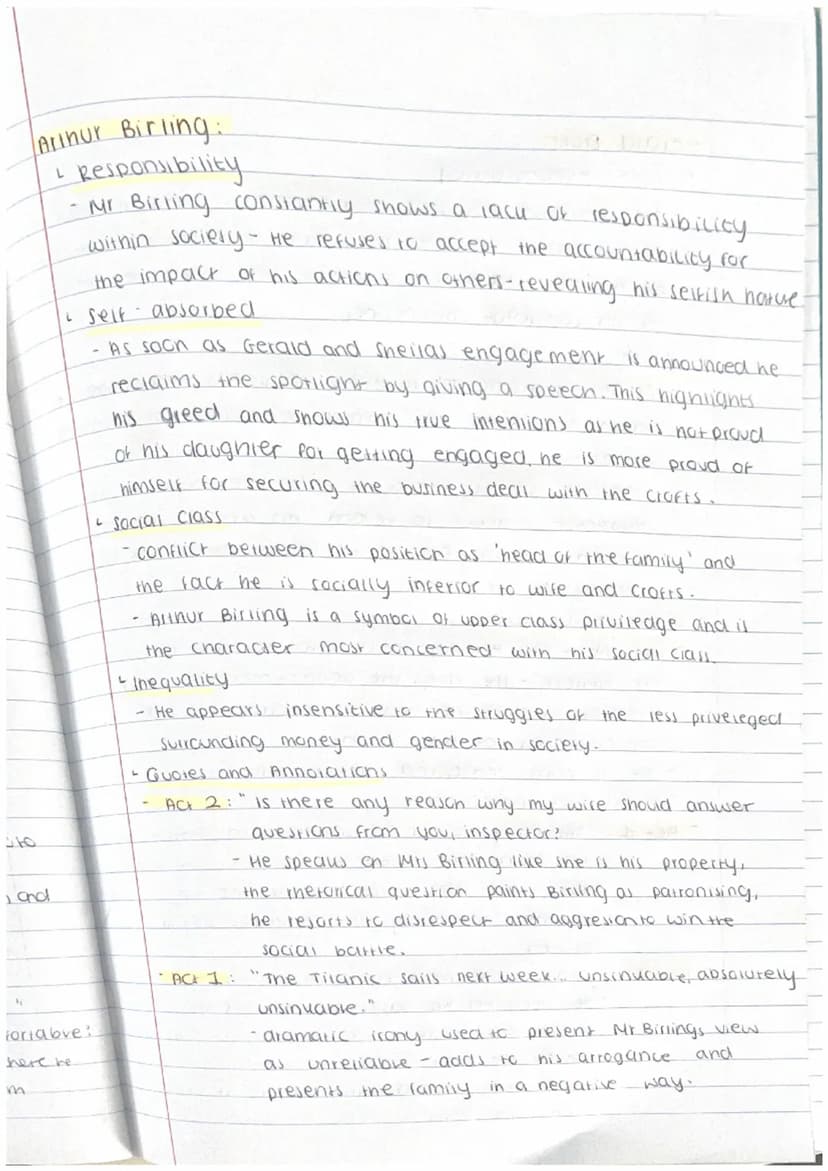 Arthur Birling:
Responsibility
- Mr Birling constantly shows a lack of responsibility
within society - He refuses to accept the accountability for
the impact of his actions on others - revealing his selfish nature
Self-absorbed
- As soon as Gerald and Sheilas engagement is announced he
reclaims the spotlight by giving a speech. This highlights
his greed and shows his true intentions as he is not proud
of his daughter for getting engaged, he is more proud of
himself for securing the business deal with the Crofts.
Social Class
- conflict between his position as 'head of the family' and
the fact he is socially inferior to wife and Crofts.
- Arthur Birling is a symbol of upper class priviledge and is
the character most concerned with his social class.
Inequality
- He appears insensitive to the struggles of the less priveleged
surrounding money and gender in society.
- Quotes and Annotations
- Act 2: "Is there any reason why my wife should answer
questions from you, inspector?
- He speaks on Mrs Birling like she is his property,
the rhetorical question paints Birling as patronising,
he resorts to disrespect and aggression to win the
social battle.
- Act 1: "The Titanic sails next week... unsinkable, absolutely
unsinkable."
- dramatic irony used to present Mr Birlings view
as unreliable - adds to his arrogance and
presents the family in a negative way.
to
and
"
here he
m